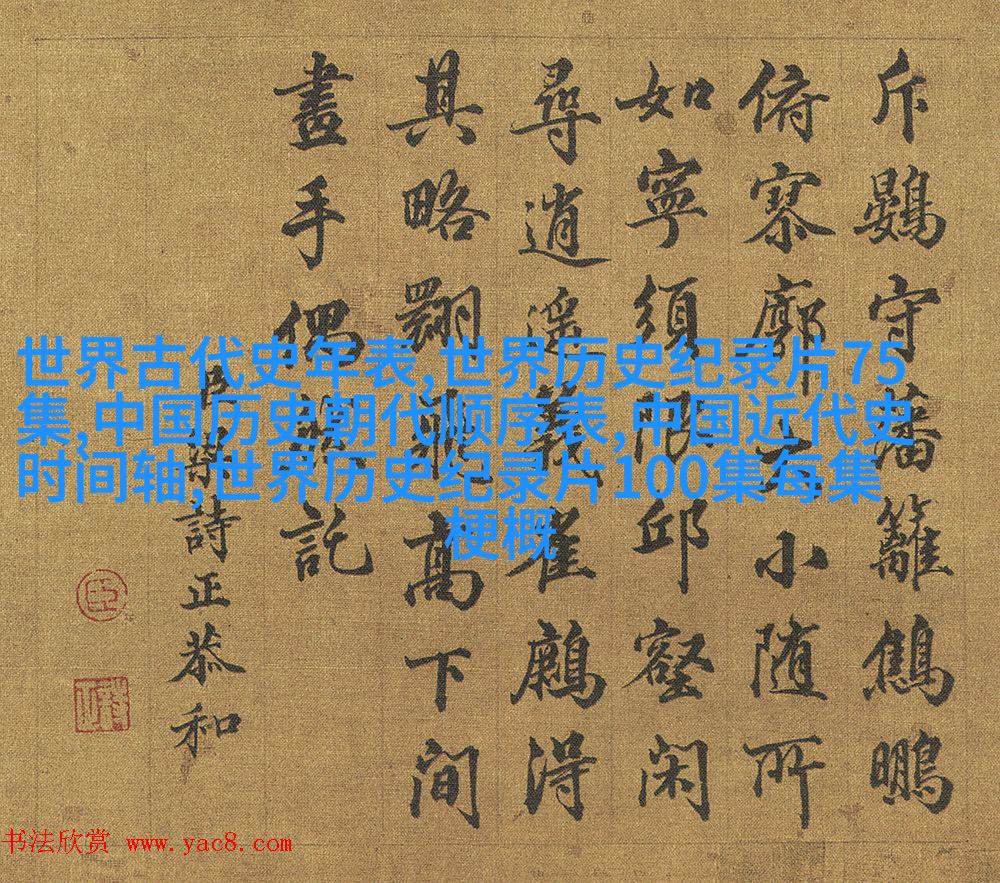 斥鷃守藩籬鷦鵬
俯寥廓大小随所
如寧須限邱壑闲
尋逍遥義雀得
其略翾飛高下間
畫手偶託
臣梁詩正恭和
世界古代史年表,世界历史纪录片75
集,中国历史朝代顺序表,中国近代史
时间轴,世界历史纪录片100集每集
梗概
书法欣赏 www.yac8.com